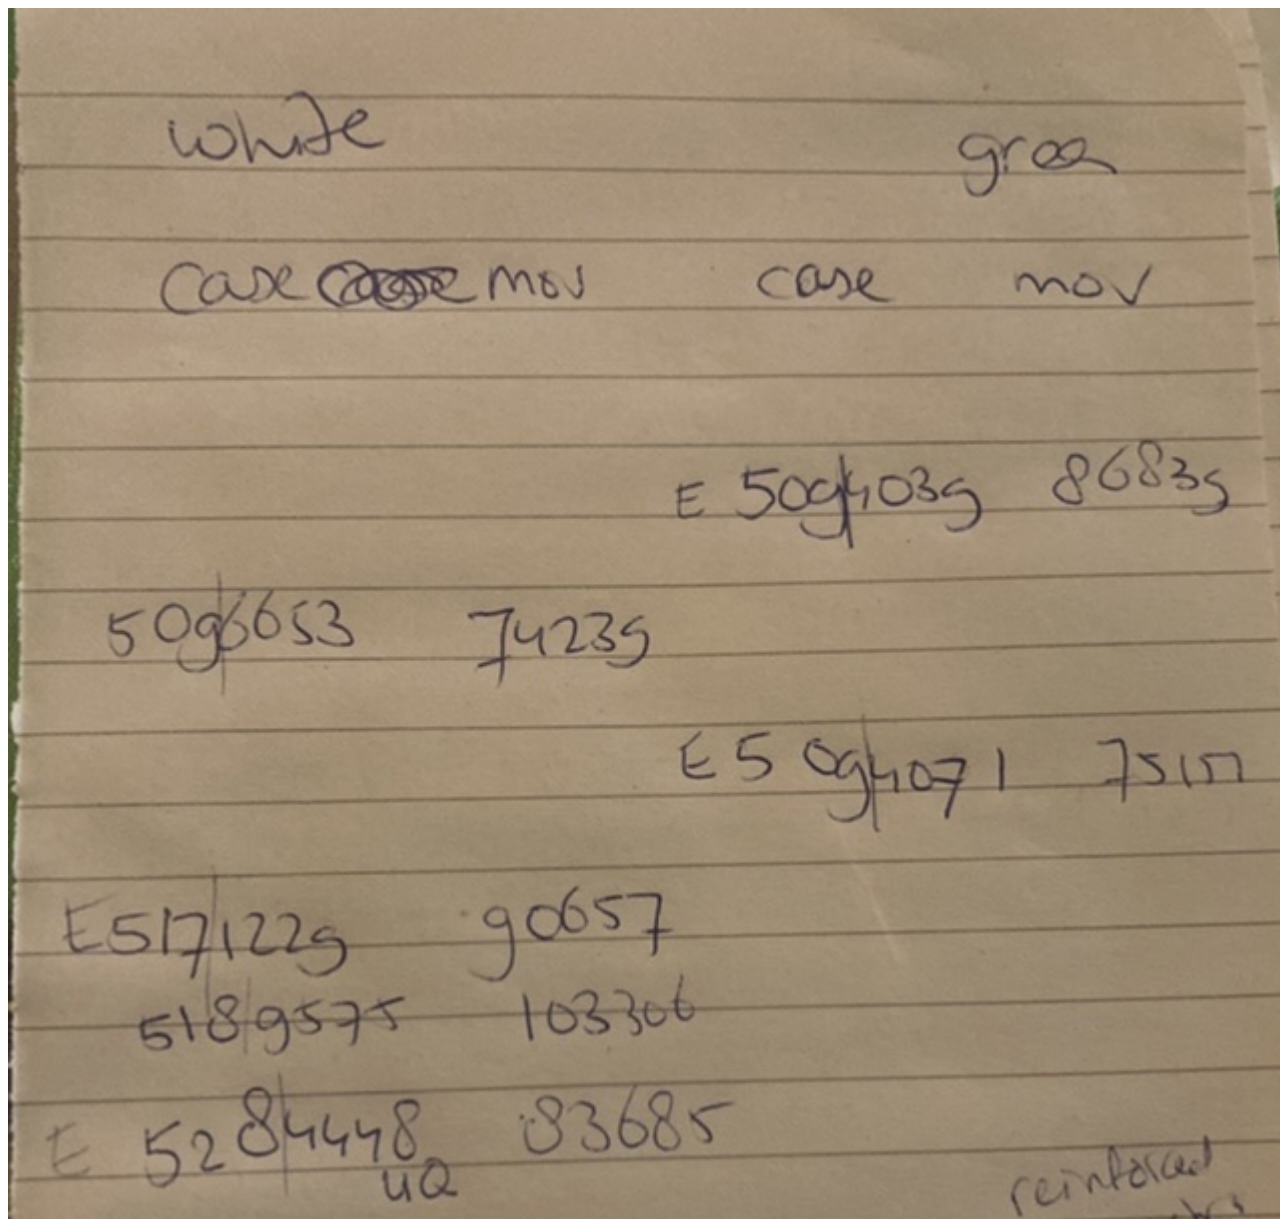 white green
case mov case mov
E 509|4039 86839
509|6653 74239
E 509|4071
E517|1229 90657
518|9575 103306
E 528|4448 83685
UQ
reinforced